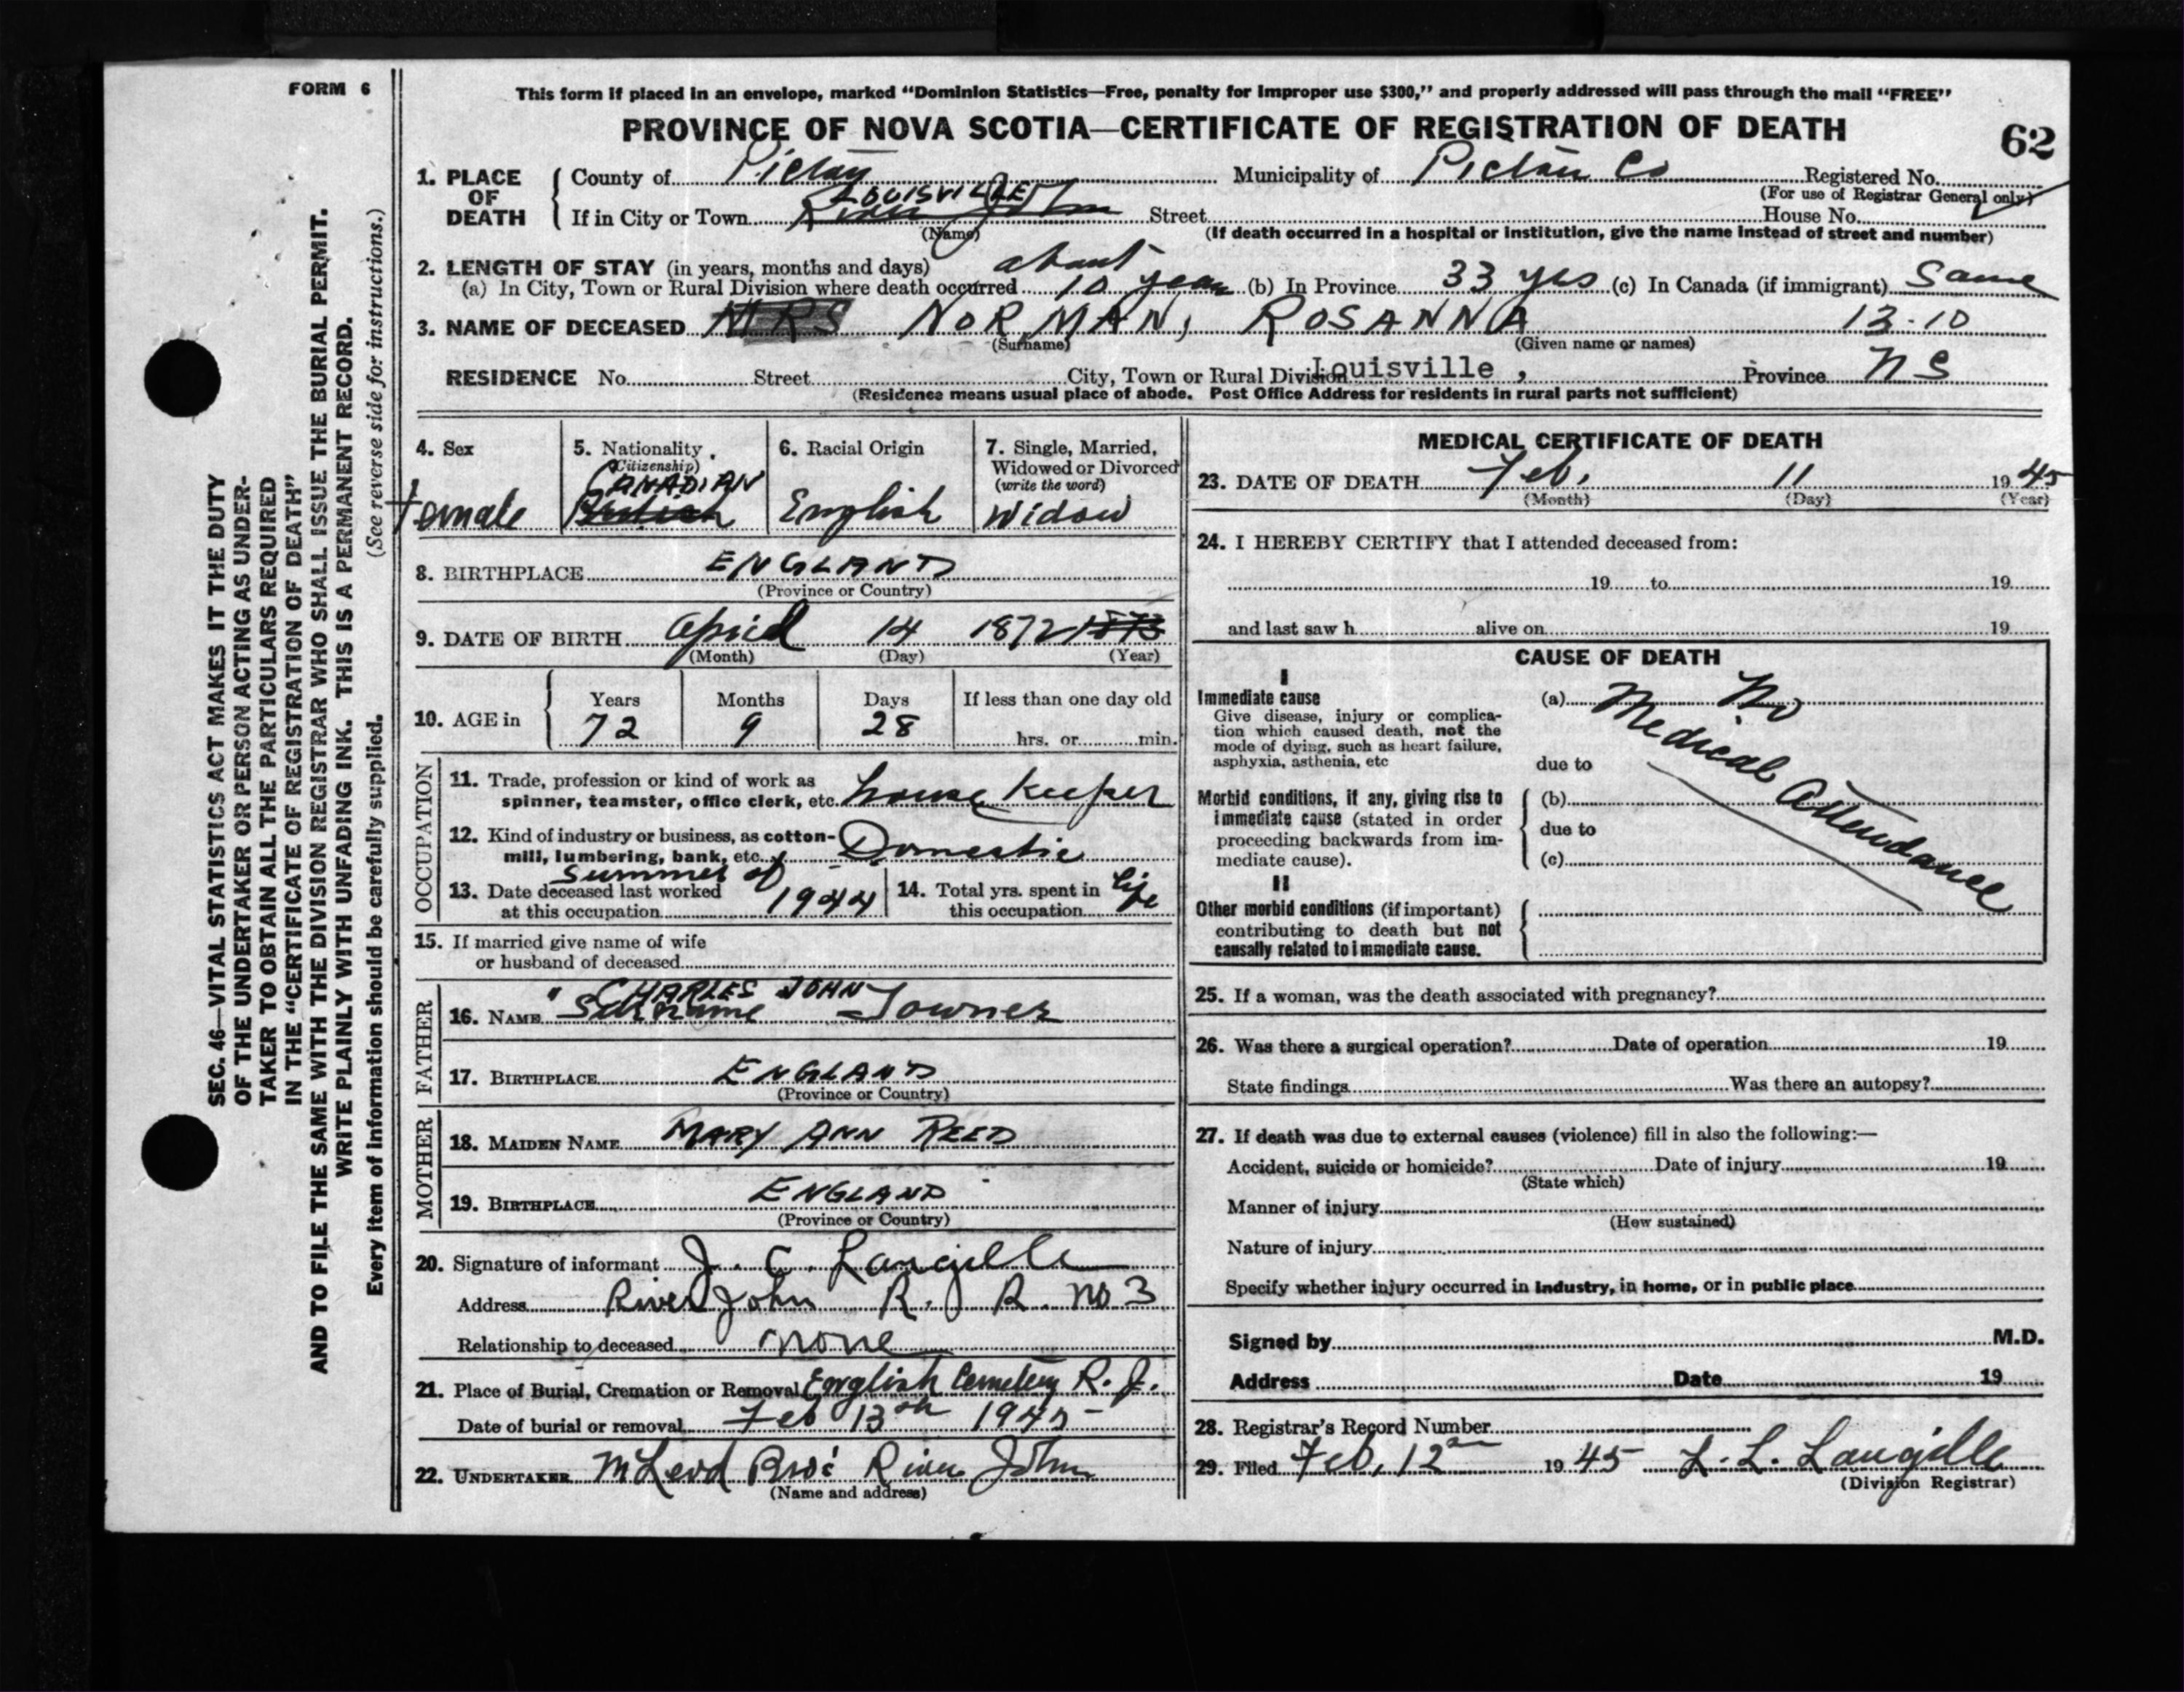 FORM 6
This form if placed in an envelope, marked "Dominion Statistics—Free, penalty for improper use $300," and properly addressed will pass through the mail "FREE"
PROVINCE OF NOVA SCOTIA—CERTIFICATE OF REGISTRATION OF DEATH
62
SEC. 46—VITAL STATISTICS ACT MAKES IT THE DUTY
OF THE UNDERTAKER OR PERSON ACTING AS UNDER-
TAKER TO OBTAIN ALL THE PARTICULARS REQUIRED
IN THE "CERTIFICATE OF REGISTRATION OF DEATH"
AND TO FILE THE SAME WITH THE DIVISION REGISTRAR WHO SHALL ISSUE THE BURIAL PERMIT.
WRITE PLAINLY WITH UNFADING INK. THIS IS A PERMANENT RECORD.
Every item of information should be carefully supplied. (See reverse side for instructions.)
1. PLACE OF DEATH
County of Pictou Municipality of Pictou Co Registered No.
(For use of Registrar General only)
LOUISVILLE
If in City or Town River John Street House No.
(Name) (If death occurred in a hospital or institution, give the name instead of street and number)
2. LENGTH OF STAY (in years, months and days) about
(a) In City, Town or Rural Division where death occurred 10 years (b) In Province 33 yrs (c) In Canada (if immigrant) Same
3. NAME OF DECEASED MRS NORMAN, ROSANNA 13-10
(Surname) (Given name or names)
RESIDENCE No. Street City, Town or Rural Division Louisville, Province N S
(Residence means usual place of abode. Post Office Address for residents in rural parts not sufficient)
4. Sex
Female
5. Nationality
(Citizenship)
CANADIAN
British
6. Racial Origin
English
7. Single, Married,
Widowed or Divorced
(write the word)
Widow
8. BIRTHPLACE ENGLAND
(Province or Country)
9. DATE OF BIRTH April 14 1872 1873
(Month) (Day) (Year)
10. AGE in
Years Months Days If less than one day old
72 9 28 hrs. or min.
OCCUPATION
11. Trade, profession or kind of work as
spinner, teamster, office clerk, etc. house keeper
12. Kind of industry or business, as cotton-
mill, lumbering, bank, etc. Domestic
13. Date deceased last worked
at this occupation Summer of 1944
14. Total yrs. spent in
this occupation life
15. If married give name of wife
or husband of deceased
FATHER
CHARLES JOHN
16. NAME " Surname - Towner
17. BIRTHPLACE ENGLAND
(Province or Country)
MOTHER
18. MAIDEN NAME MARY ANN REED
19. BIRTHPLACE ENGLAND
(Province or Country)
20. Signature of informant J. C. Langille
Address River John R. R. No 3
Relationship to deceased none
21. Place of Burial, Cremation or Removal English Cemetery R. J.
Date of burial or removal Feb 13th 1945
22. UNDERTAKER McLeod Bros River John
(Name and address)
MEDICAL CERTIFICATE OF DEATH
23. DATE OF DEATH Feb. 11 1945
(Month) (Day) (Year)
24. I HEREBY CERTIFY that I attended deceased from:
19 to 19
and last saw h alive on 19
CAUSE OF DEATH
I
Immediate cause
Give disease, injury or complica-
tion which caused death, not the
mode of dying, such as heart failure,
asphyxia, asthenia, etc
(a) No
Medical Attendance
due to
Morbid conditions, if any, giving rise to
immediate cause (stated in order
proceeding backwards from im-
mediate cause).
(b)
due to
(c)
II
Other morbid conditions (if important)
contributing to death but not
causally related to immediate cause.
25. If a woman, was the death associated with pregnancy?
26. Was there a surgical operation? Date of operation 19
State findings Was there an autopsy?
27. If death was due to external causes (violence) fill in also the following:—
Accident, suicide or homicide? Date of injury 19
(State which)
Manner of injury
(How sustained)
Nature of injury
Specify whether injury occurred in industry, in home, or in public place
Signed by M.D.
Address Date 19
28. Registrar's Record Number
29. Filed Feb, 12 1945 L. L. Langille
(Division Registrar)